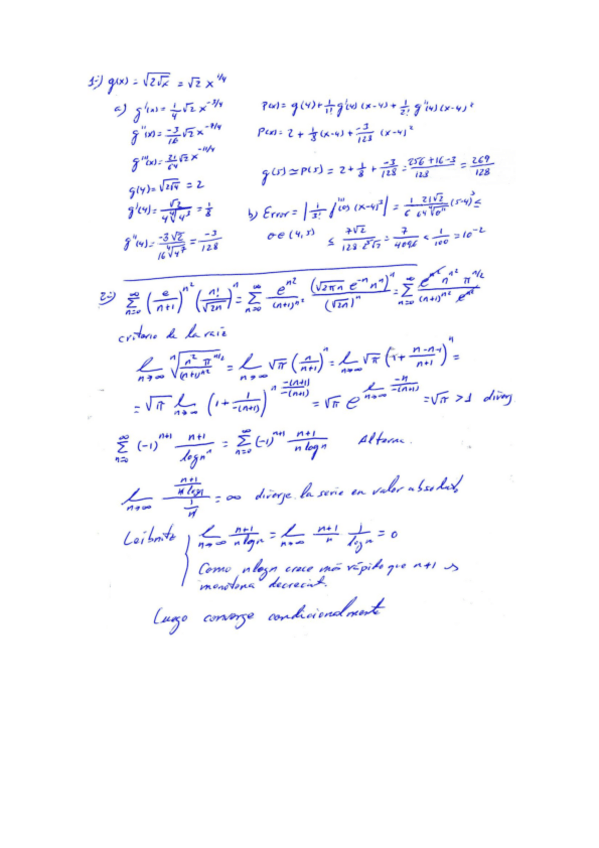 1-) g(x) = √(2√x) = √2 x^{1/4}
a) g'(x) = 1/4 √2 x^{-3/4}
g''(x) = -3/16 √2 x^{-7/4}
g'''(x) = 21/64 √2 x^{-11/4}
g(4) = √(2√4) = 2
g'(4) = √2/(4 ∜4³) = 1/8
g''(4) = -3√2/(16 ∜4⁷) = -3/128
P(x) = g(4) + 1/1! g'(4) (x-4) + 1/2! g''(4) (x-4)²
P(x) = 2 + 1/8 (x-4) + -3/128 (x-4)²
g(5) ≃ P(5) = 2 + 1/8 + -3/128 = 256+16-3/128 = 269/128
b) Error = |1/3! f'''(θ) (x-4)³| = 1/6 21√2/64 (5-4)³ ≤
θ ∈ (4,5) ≤ 7√2/128 = 7/4096 < 1/100 = 10^{-2}
2-) ∑_{n=0}^{∞} (e/(n+1))^{n²} (n!/√(2n))^n = ∑_{n=0}^{∞} e^{n²}/(n+1)^{n²} · (√(2πn) e^{-n} n^n)^n/(√(2n))^n = ∑_{n=0}^{∞} e^{n²} n^{n²} π^{n/2}/((n+1)^{n²} e^{n²})
criterio de la raiz
lim_{n→∞} ⁿ√(n^{n²} π^{n/2}/(n+1)^{n²}) = lim_{n→∞} √π (n/(n+1))^n = lim_{n→∞} √π (1 + (n-n-1)/(n+1))^n =
= √π lim_{n→∞} (1 + 1/(-(n+1)))^{n · -(n+1)/-(n+1)} = √π e^{lim_{n→∞} -n/-(n+1)} = √π > 1 diverg
∑_{n=0}^{∞} (-1)^{n+1} (n+1)/(log n^n) = ∑_{n=0}^{∞} (-1)^{n+1} (n+1)/(n log n) Alterna.
lim_{n→∞} ((n+1)/(n log n))/(1/n) = ∞ diverge la serie en valor absoluto
Leibnitz { lim_{n→∞} (n+1)/(n log n) = lim_{n→∞} (n+1)/n · 1/log n = 0
Como n log n crece más rápido que n+1 es
monótona decrecient.
Luego converge condicionalmente